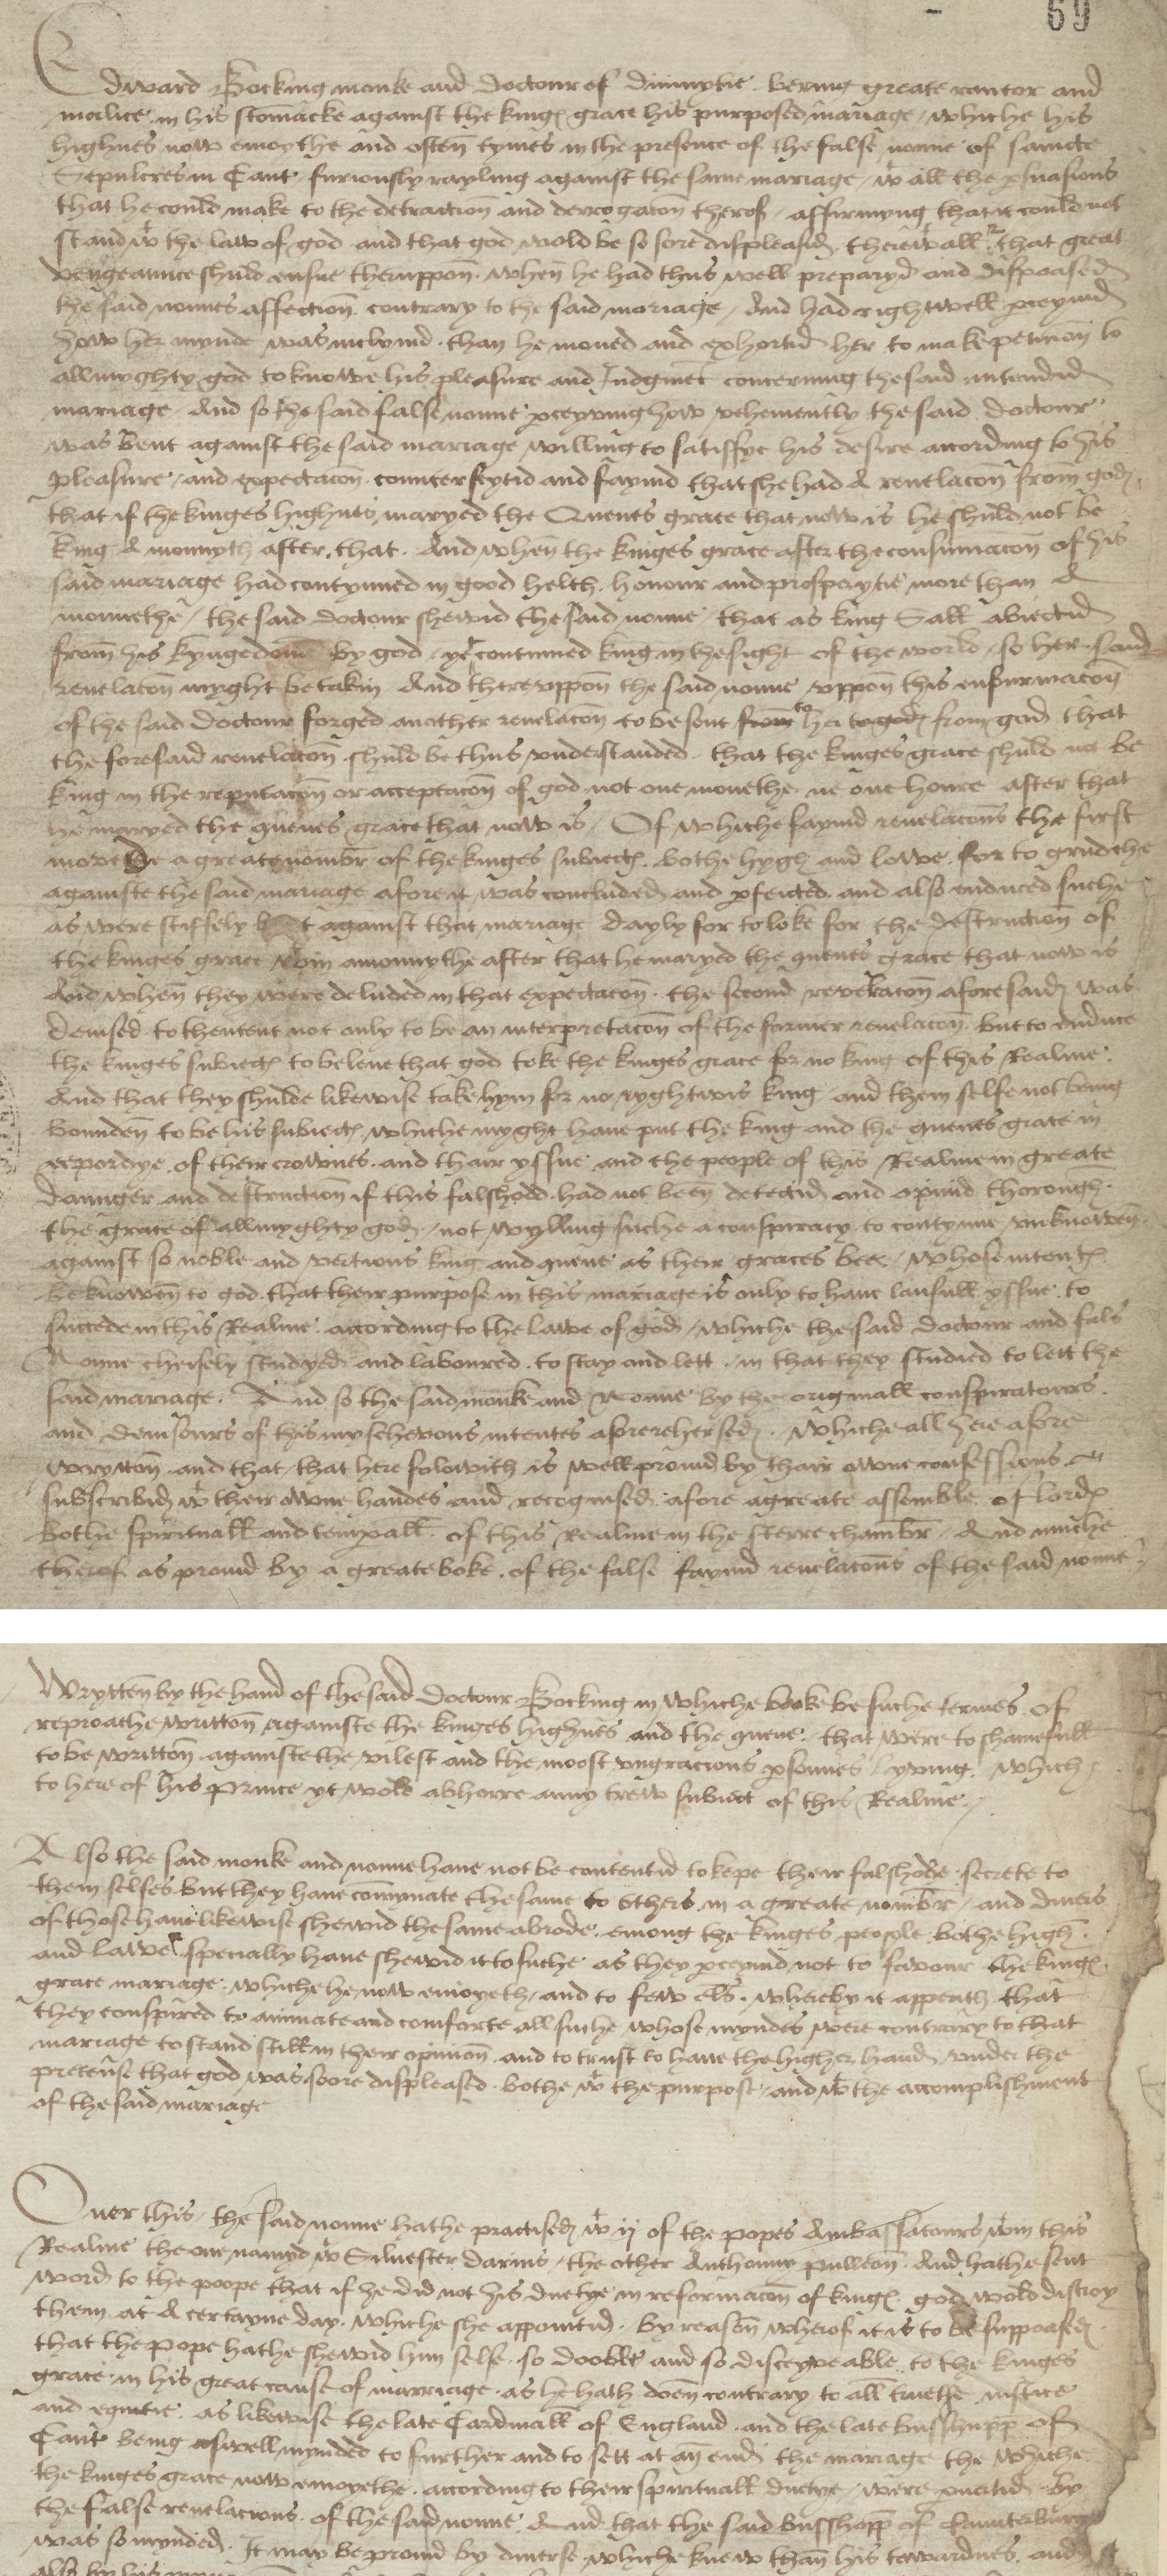 69
Edward Bocking monke and doctour of diuinytie bering greate rancor and
malice in his stomacke against the king grace his purposed mariage / whiche his
highnes now enioythe and often tymes in the presence of the false nonne of saincte
Sepulcres in Cant furiously rayling against the same mariage / wt all the psuasions
that he could make to the detraction and derrogacon therof / affirmyng that it could not
stand wt the law of god and that god wold be so sore displeasid therewtall that great
vengeaunce shuld ensue theruppon. when he had thus well preparyd and disposed
the said nonnes affection contrary to the said mariage / And had right well pceyuid
how her mynde was inclynid. than he moued and exhortid her to make peticion to
allmyghty god to knowe his pleasure and Iudgmet concerning the said intendid
mariage. And so the said false nonne pceyving how vehemently the said doctour
was bent against the said mariage willing to satisfye his desire according to his
pleasure / and expectacon counterfeytid and faynid that she had A reuelacon from god
that if the kinges highnes maryed the Quenes grace that now is he shuld not be
king A monnyth after that. And when the kinges grace after the consumacon of his
said mariage had contynued in good helth honour and prosperytie more than A
monnethe / the said doctour shewid the said nonne / that as king Sall abiectid
from his kyngedome by god yet contynued king in the sight of the world / so her said
reuelacon myght be takin. And therevppon the said nonne vppon this enformacon
of the said doctour forged another reuelacon to be sent from to her to god from god that
the foresaid reuelacon shuld be thus vnderstanded. that the kinges grace shuld not be
king in the reputacon or acceptacon of god not one monethe ne one houre after that
he maryed the quenes grace that now is / Of whiche faynid reuelacons the first
movede a greate nombr of the kinges subiect bothe hygh and lowe for to grudche
againste the said mariage afore it was concluded and pfected and also enduced suche
as were stiffely bent against that mariage dayly for to loke for the destruction of
the kinges grace wtin a monnythe after that he maryed the quenes grace that now is
And when they were deluded in that expectacon. the second revelacon aforesaid was
deuised to thentent not only to be an interpretacon of the former reuelacon but to enduce
the kinges subiect to beleue that god toke the kinges grace for no king of this Realme.
And that they shulde likewise take hym for no ryghtwis king and them selfe not being
bounden to be his subiect whiche myght haue put the king and the quenes grace in
ieopordye of their crownes and thair yssue and the people of this Realme in greate
daunger and destruction if this falshodd had not been detectid and opinid thorough
the grace of allmyghty god / not wylling suche a conspiracy to contynue vnknowen
against so noble and vertious king and quene as their graces bee / whose intent
be knowen to god that their purpose in this mariage is only to haue laufull yssue to
succede in this Realme according to the lawe of god / whiche the said doctour and fals
Nonne cheifely studyed and laboured to stay and lett in that they studied to lett the
said mariage. And so the said monke and Nonne by the originall conspiratours
and deuisours of this myschevous intentes aforerehersed. whiche all here afore
wrytton and that that here folowith is well prouid by thair owne confessions
subscribid wt their owne handes and recognised afore a greate assemble of lord
bothe spirituall and tempall of this Realme in the sterre chambr / And muche
therof as prouid by a greate boke of the false faynid reuelacons of the said nonne
Wrytten by the hand of the said doctour Bocking in whiche booke be suche termes of
reproache writton againste the kinges highnes and the quene / that were to shamefull
to be writton againste the vilest and the moost vngracious psonnes lyving. which
to here of his prince yt wold abhorre anny trew subiect of this Realme.
Also the said monke and nonne haue not be contentid to kepe their falshode secrete to
them selfes but they haue comynate the same to others in a greate nombr / and diuers
of those haue likewise shewid the same abrode emong the kinges people bothe high
and lawe specially haue shewid it to suche as they pceyuid not to favour the king
grace mariage whiche he now enioyeth / and to few els. whereby it apperith that
they conspired to animate and comforte all suche whose myndes were contrary to that
mariage to stand still in their opinion and to trust to haue the higher hand vnder the
pretense that god was soore displeased bothe wt the purpose / and wt the accomplishment
of the said mariage
Ouer this / the said nonne hathe practised wt ij of the popes Ambassatours wtin this
Realme the one namyd Siluester darius / the other Anthonny pulleon. And hathe sent
word to the poope that if he did not his duetye in reformacon of king god wold distroy
them at A certayne day whiche she appointid. By reason wherof it is to be supposed
that the pope hathe shewid him self so dooble and so disceyveable to the kinges
grace in his great cause of marriage as he hath doen contrary to all truethe iustice
and equitie as likewise the late Cardinall of England and the late busshupp of
Cant being aswell mynded to further and to sett at an end the mariage the whiche
the kinges grace now enioyethe according to their spirituall duetye / were puertid by
the false reuelacions of the said nonne. And that the said busshopp of Caunterbury
was so mynded. It may be prouid by diuerse whiche knew than his towardnes and